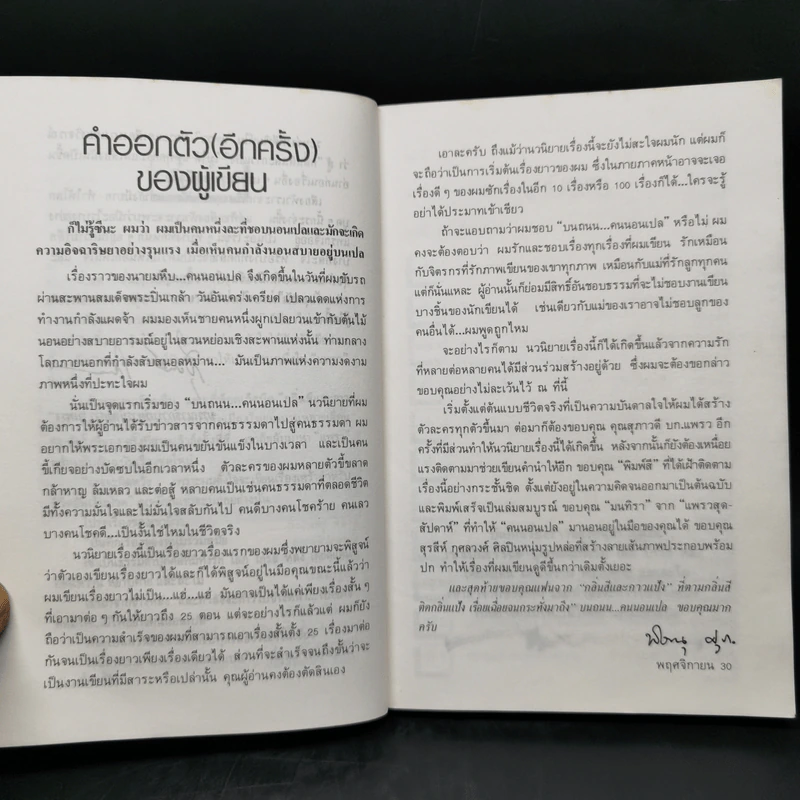 คำออกตัว(อีกครั้ง)
ของผู้เขียน
ก็ไม่รู้ซีนะ ผมว่า ผมเป็นคนหนึ่งละที่ชอบนอนเปลและมักจะเกิด
ความอิจฉาริษยาอย่างรุนแรง เมื่อเห็นคนกำลังนอนสบายอยู่บนเปล
เรื่องราวของนายมหีบ...คนนอนเปล จึงเกิดขึ้นในวันที่ผมขับรถ
ผ่านสะพานสมเด็จพระปิ่นเกล้า วันอันเคร่งเครียด เปลวแดดแห่งการ
ทำงานกำลังแผดจ้า ผมมองเห็นชายคนหนึ่งผูกเปลยวนเข้ากับต้นไม้
นอนอย่างสบายอารมณ์อยู่ในสวนหย่อมเชิงสะพานแห่งนั้น ท่ามกลาง
โลกภายนอกที่กำลังสับสนอลหม่าน... มันเป็นภาพแห่งความงดงาม
ภาพหนึ่งที่ปะทะใจผม
นั่นเป็นจุดแรกเริ่มของ "บนถนน...คนนอนเปล" นวนิยายที่ผม
ต้องการให้ผู้อ่านได้รับข่าวสารจากคนธรรมดาไปสู่คนธรรมดา ผม
อยากให้พระเอกของผมเป็นคนขยันขันแข็งในบางเวลา และเป็นคน
ขี้เกียจอย่างบัดซบในอีกเวลาหนึ่ง ตัวละครของผมหลายตัวขี้ขลาด
กล้าหาญ ล้มเหลว และต่อสู้ หลายคนเป็นเช่นคนธรรมดาที่ตลอดชีวิต
มีทั้งความมั่นใจและไม่มั่นใจสลับกันไป คนดีบางคนโชคร้าย คนเลว
บางคนโชคดี...เป็นงั้นใช่ไหมในชีวิตจริง
นวนิยายเรื่องนี้เป็นเรื่องยาวเรื่องแรกของผมซึ่งพยายามจะพิสูจน์
ว่าตัวเองเขียนเรื่องยาวได้และก็ได้พิสูจน์อยู่ในมือคุณขณะนี้แล้วว่า
ผมเขียนเรื่องยาวไม่เป็น...แฮ่...แฮ่ มันอาจเป็นได้แค่เพียงเรื่องสั้น ๆ
ที่เอามาต่อ ๆ กันให้ยาวถึง 25 ตอน แต่จะอย่างไรก็แล้วแต่ ผมก็ยัง
ถือว่าเป็นความสำเร็จของผมที่สามารถเอาเรื่องสั้นตั้ง 25 เรื่องมาต่อ
กันจนเป็นเรื่องยาวเพียงเรื่องเดียวได้ ส่วนที่จะสำเร็จจนถึงขั้นว่าจะ
เป็นงานเขียนที่มีสาระหรือเปล่านั้น คุณผู้อ่านคงต้องตัดสินเอง
เอาละครับ ถึงแม้ว่านวนิยายเรื่องนี้จะยังไม่สะใจผมนัก แต่ผมก็
จะถือว่าเป็นการเริ่มต้นเรื่องยาวของผม ซึ่งในภายภาคหน้าอาจจะเจอ
เรื่องดี ๆ ของผมซักเรื่องในอีก 10 เรื่องหรือ 100 เรื่องก็ได้...ใครจะรู้
อย่าได้ประมาทเข้าเชียว
ถ้าจะแอบถามว่าผมชอบ "บนถนน...คนนอนเปล" หรือไม่ ผม
คงจะต้องตอบว่า ผมรักและชอบเรื่องทุกเรื่องที่ผมเขียน รักเหมือน
กับจิตรกรที่รักภาพเขียนของเขาทุกภาพ เหมือนกับแม่ที่รักลูกทุกคน
แต่ก็นั่นแหละ ผู้อ่านนั้นก็ย่อมมีสิทธิ์อันชอบธรรมที่จะไม่ชอบงานเขียน
บางชิ้นของนักเขียนได้ เช่นเดียวกับแม่ของเราอาจไม่ชอบลูกของ
คนอื่นได้...ผมพูดถูกไหม
จะอย่างไรก็ตาม นวนิยายเรื่องนี้ก็ได้เกิดขึ้นแล้วจากความรัก
ที่หลายต่อหลายคนได้มีส่วนร่วมสร้างอยู่ด้วย ซึ่งผมจะต้องขอกล่าว
ขอบคุณอย่างไม่ละเว้นไว้ ณ ที่นี้
เริ่มตั้งแต่ต้นแบบชีวิตจริงที่เป็นความบันดาลใจให้ผมได้สร้าง
ตัวละครทุกตัวขึ้นมา ต่อมาก็ต้องขอบคุณ คุณสุภาวดี บก.แพรว อีก
ครั้งที่มีส่วนทำให้นวนิยายเรื่องนี้ได้เกิดขึ้น หลังจากนั้นก็ยังต้องเหนื่อย
แรงติดตามมาช่วยเขียนคำนำให้อีก ขอบคุณ "พิมพ์สี" ที่ได้เฝ้าติดตาม
เรื่องนี้อย่างกระชั้นชิด ตั้งแต่ยังอยู่ในความคิดจนออกมาเป็นต้นฉบับ
และพิมพ์เสร็จเป็นเล่มสมบูรณ์ ขอบคุณ "มนทิรา" จาก "แพรวสุด-
สัปดาห์" ที่ทำให้ "คนนอนเปล" มานอนอยู่ในมือของคุณได้ ขอบคุณ
สุรสีห์ กุศลวงศ์ ศิลปินหนุ่มรูปหล่อที่สร้างลายเส้นภาพประกอบพร้อม
ปก ทำให้เรื่องที่ผมเขียนดูดีขึ้นกว่าเดิมตั้งเยอะ
และสุดท้ายขอบคุณแฟนจาก "กลิ่นสีและกาวแป้ง" ที่ตามกลิ่นสี
ติดกลิ่นแป้ง เรื่อยเฉื่อยจนกระทั่งมาถึง "บนถนน...คนนอนเปล ขอบคุณมาก
ครับ
พฤศจิกายน 30